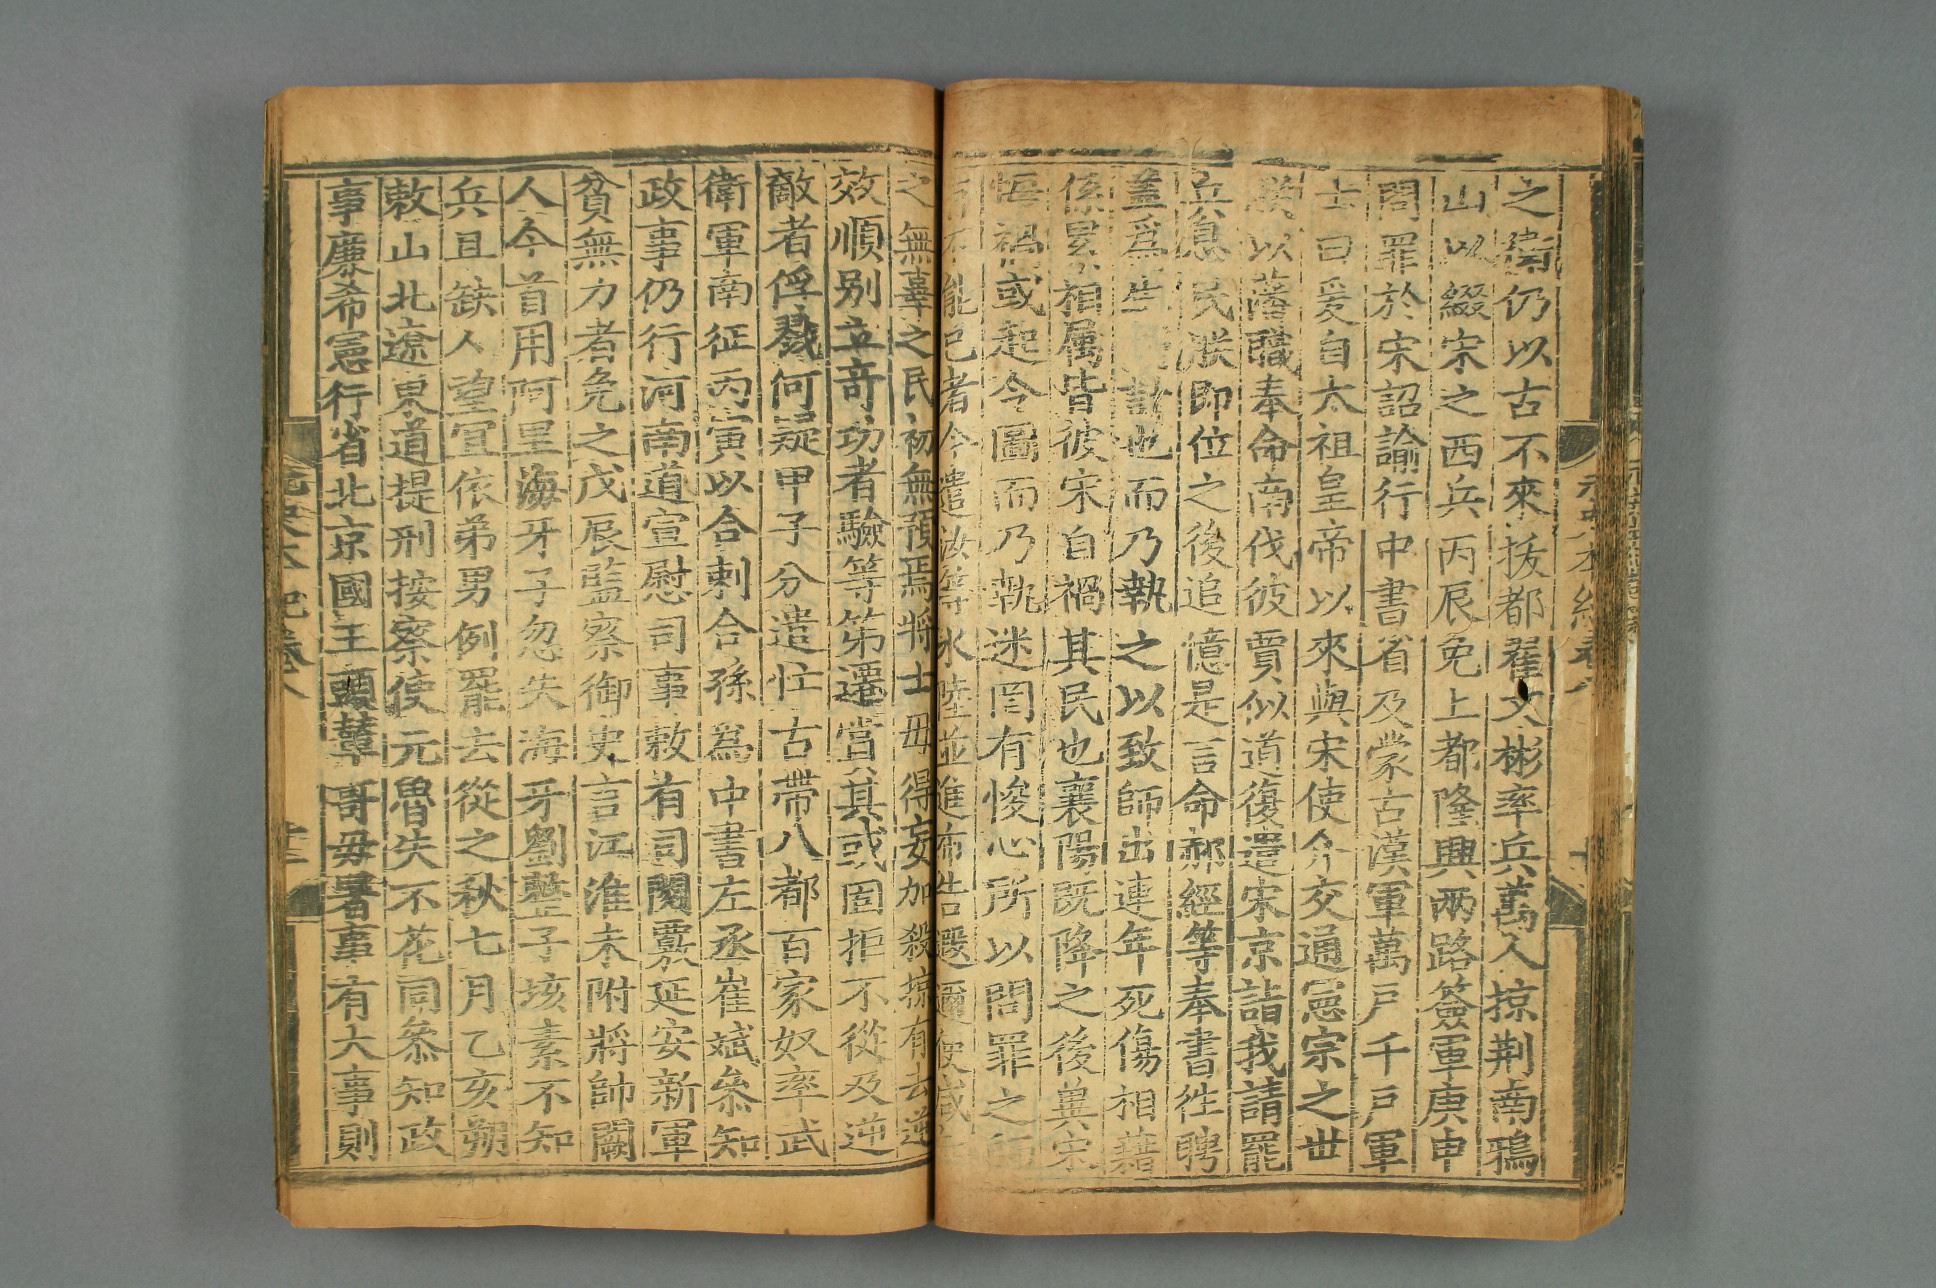 之衛仍以古不來拔都翟文彬率兵萬人掠荆南鴉
山以綴宋之西兵丙辰免上都隆興兩路簽軍庚申
問罪於宋詔諭行中書省及蒙古漢軍萬戶千戶軍
士曰爰自太祖皇帝以來與宋使介交通憲宗之世
朕以藩職奉命南伐彼賈似道復遣宋京詣我請罷
兵息民朕即位之後追憶是言命郝經等奉書徃聘
盖爲生靈計也而乃執之以致師出連年死傷相藉
係累相属皆彼宋自禍其民也襄陽既降之後兾宋
悔禍或起令圖而乃執迷罔有悛心所以問罪之師
有不能已者今遣汝等水陸並進布告遐邇使咸知
之無辜之民初無預焉將士毋得妄加殺掠有去逆
效順别立竒功者驗等第遷賞其或固拒不從及逆
敵者俘戮何疑甲子分遣忙古帶八都百家奴率武
衛軍南征丙寅以合剌合孫爲中書左丞崔斌叅知
政事仍行河南道宣慰司事敕有司閱覈延安新軍
貧無力者免之戊辰監察御史言江淮未附將帥闕
人今首用阿里海牙子忽失海牙劉整子垓素不知
兵且缺人望宜依弟男例罷去從之秋七月乙亥朔
敕山北遼東道提刑按察使元魯失不花同叅知政
事廉希憲行省北京國王頭輦哥毋署事有大事則
元史本紀卷八